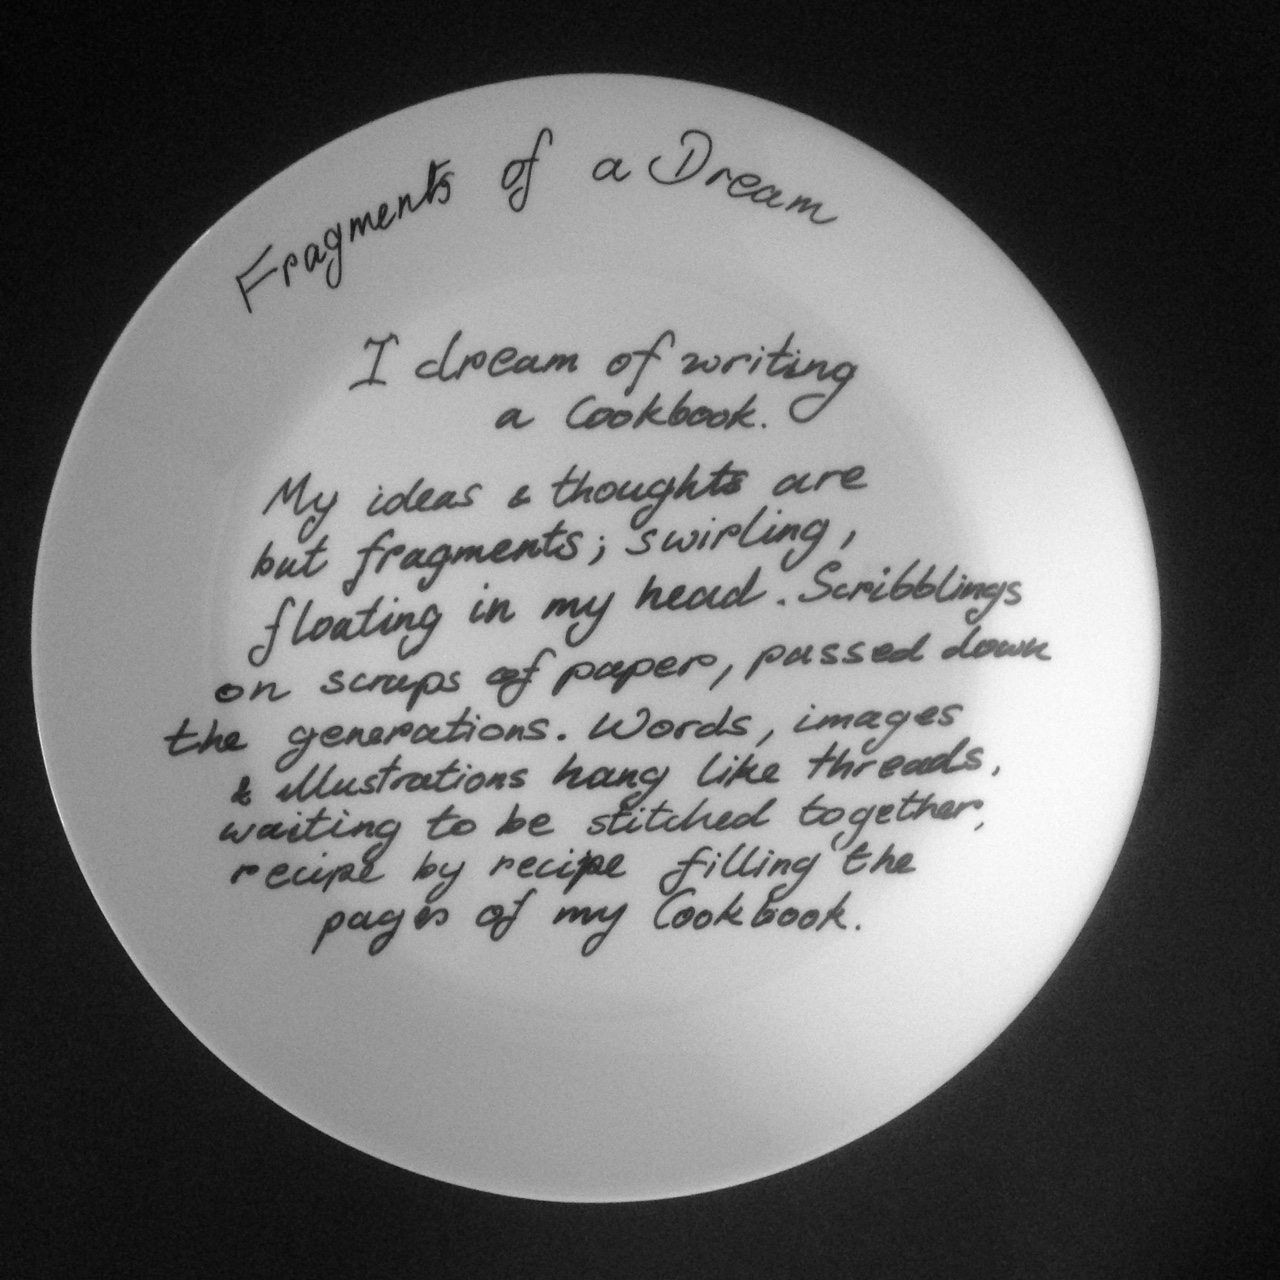 Fragments of a Dream
I dream of writing
a Cookbook.
My ideas & thoughts are
but fragments; swirling,
floating in my head. Scribblings
on scraps of paper, passed down
the generations. Words, images
& illustrations hang like threads,
waiting to be stitched together,
recipe by recipe filling the
pages of my Cookbook.